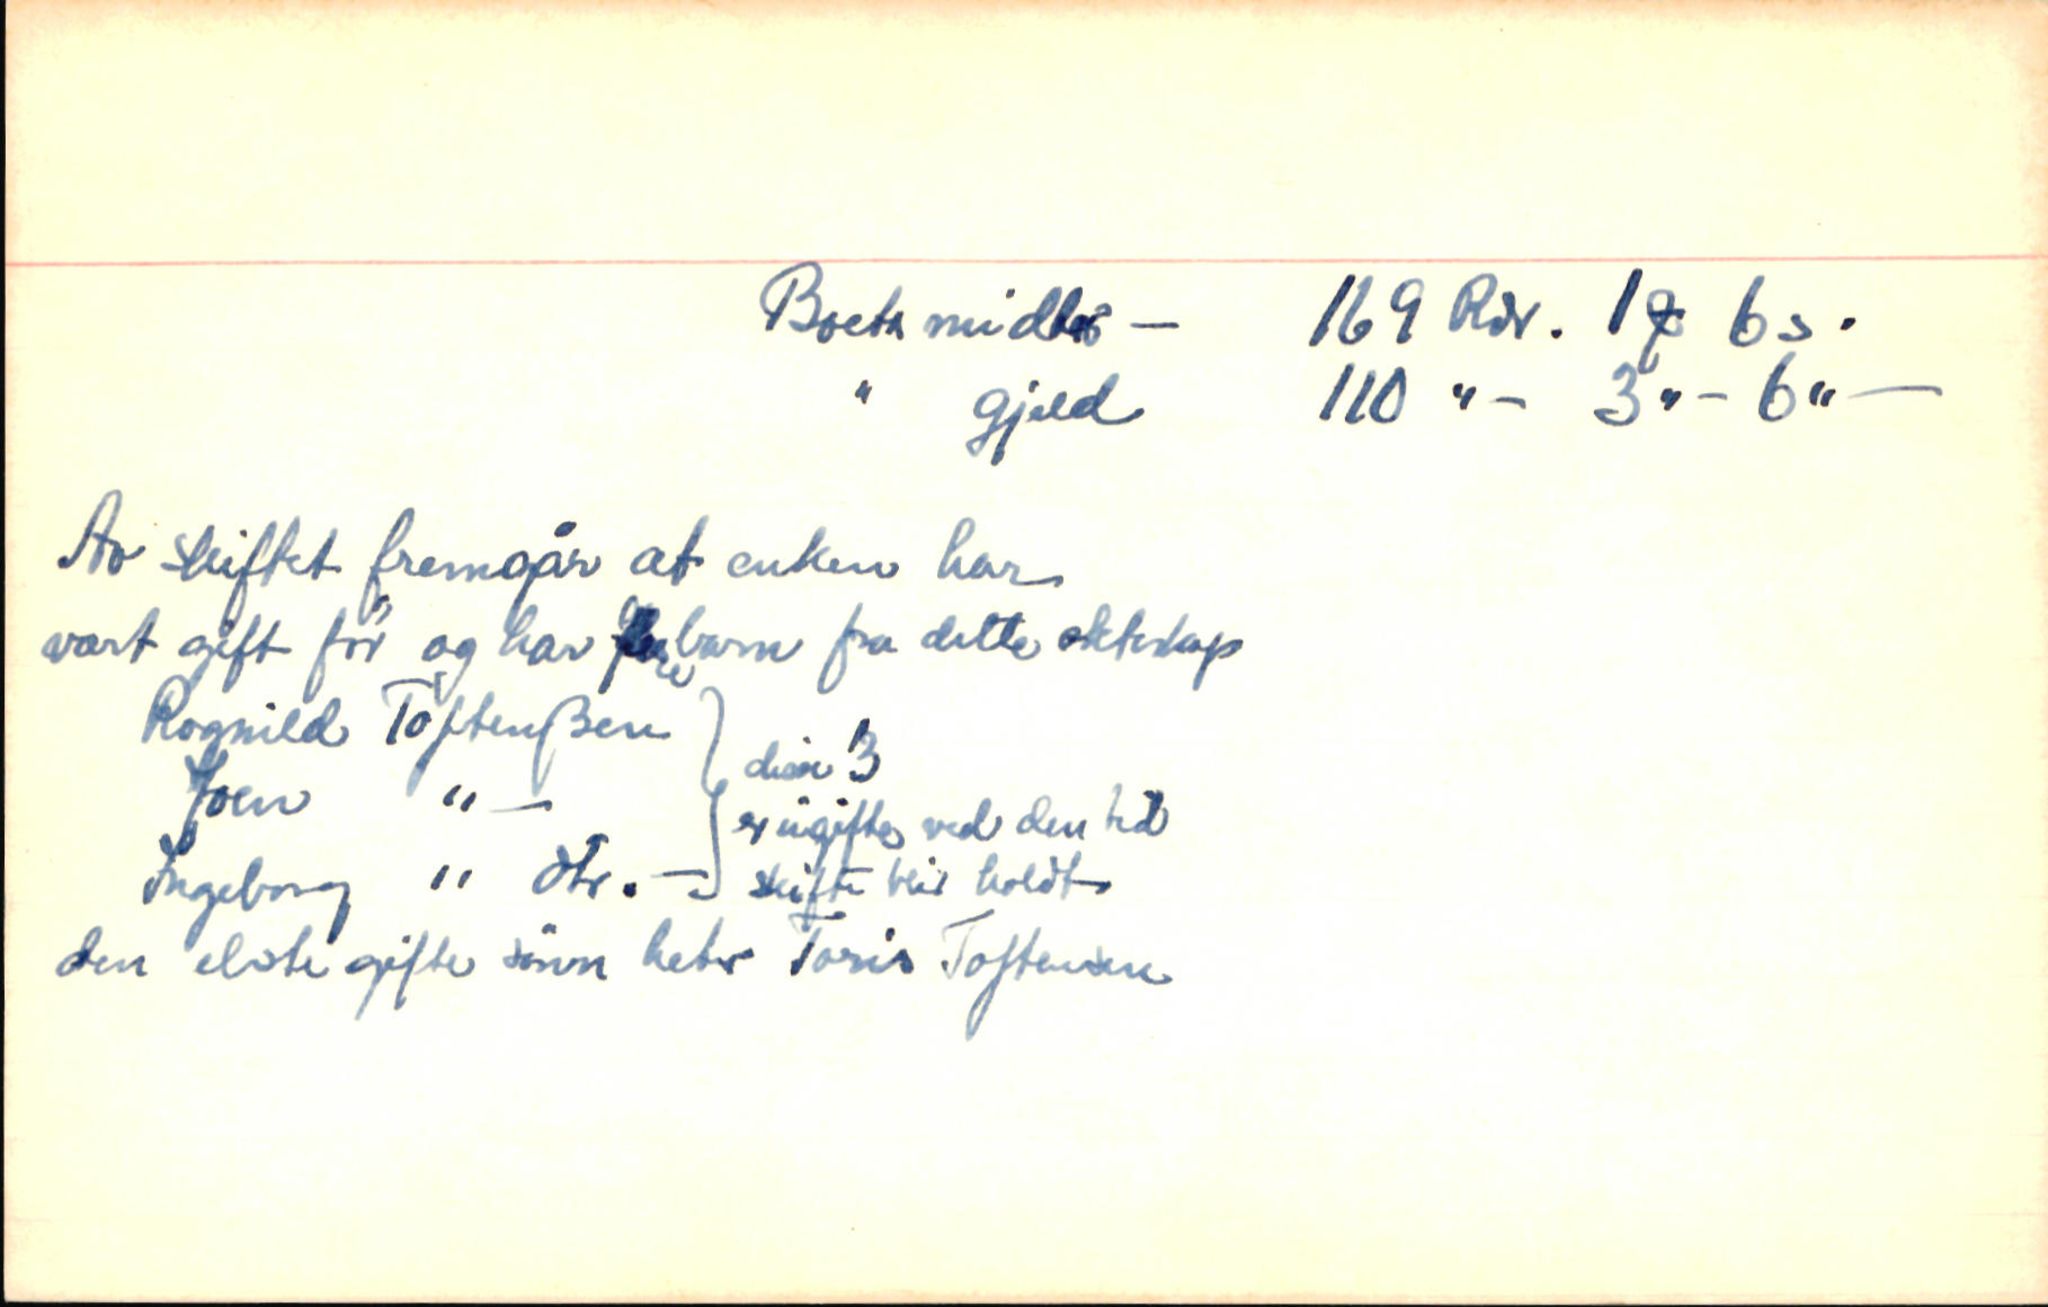 Boets midler — 169 Rdr. 1 6 s.
" gjeld 110 " – 3 " – 6 " —
Av skiftet fremgår at enken har
vært gift før og har barn fra dette ekteskap
Rognild Toftenßen
Joen " —
Ingeborg " dtr. —
disse 3
er ugifte ved den tid
skifte blir holdt
den elste gifte sönn heter Toris Toftensen